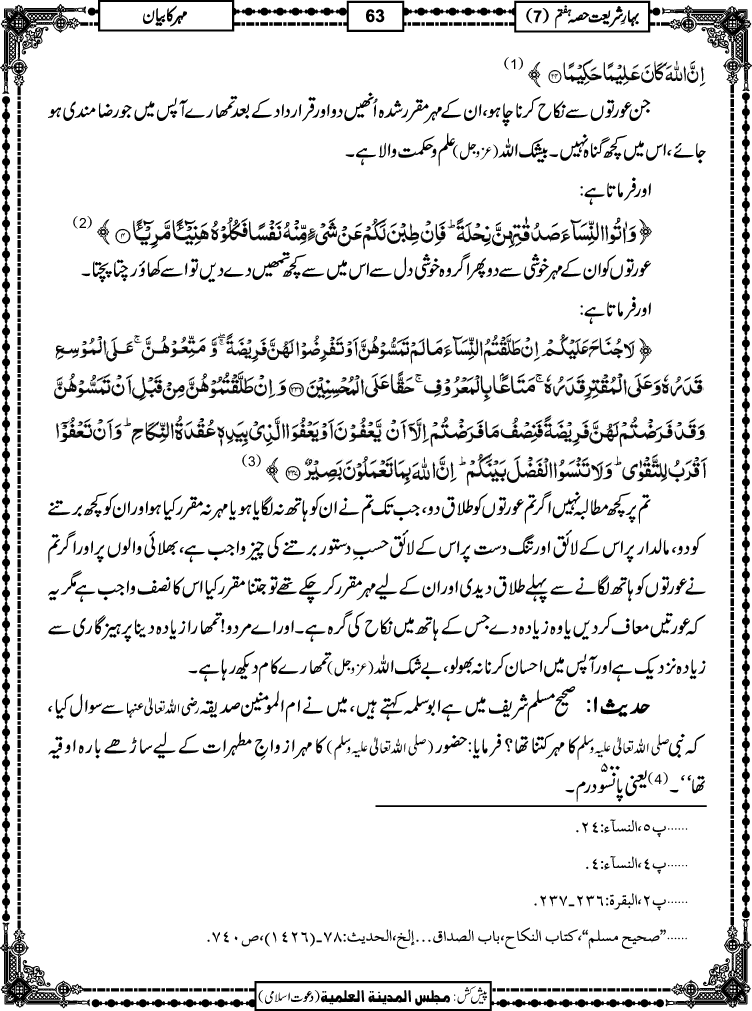 بہارِ شریعت حصہ ہفتم (7)
63
مہر کا بیان
اِنَّ اللّٰهَ كَانَ عَلِیْمًا حَكِیْمًا ۝۲۴ ﴾ (1)
جن عورتوں سے نکاح کرنا چاہو، ان کے مہر مقرر شدہ اُنھیں دو اور قرار داد کے بعد تمھارے آپس میں جو رضا مندی ہو
جائے، اس میں کچھ گناہ نہیں۔ بیشک اللہ (عزوجل) علم و حکمت والا ہے۔
اور فرماتا ہے:
﴿ وَ اٰتُوا النِّسَآءَ صَدُقٰتِهِنَّ نِحْلَةً ؕ فَاِنْ طِبْنَ لَكُمْ عَنْ شَیْءٍ مِّنْهُ نَفْسًا فَكُلُوْهُ هَنِیْٓــٴًـا مَّرِیْٓــٴًـا ۝۴ ﴾ (2)
عورتوں کو ان کے مہر خوشی سے دو پھر اگر وہ خوشی دل سے اس میں سے کچھ تمھیں دے دیں تو اسے کھاؤ رچتا پچتا۔
اور فرماتا ہے:
﴿ لَا جُنَاحَ عَلَیْكُمْ اِنْ طَلَّقْتُمُ النِّسَآءَ مَا لَمْ تَمَسُّوْهُنَّ اَوْ تَفْرِضُوْا لَهُنَّ فَرِیْضَةً ۖۚ وَّ مَتِّعُوْهُنَّ ۚ عَلَى الْمُوْسِعِ
قَدَرُهٗ وَ عَلَى الْمُقْتِرِ قَدَرُهٗ ۚ مَتَاعًۢا بِالْمَعْرُوْفِ ۚ حَقًّا عَلَى الْمُحْسِنِیْنَ ۝۲۳۶ وَ اِنْ طَلَّقْتُمُوْهُنَّ مِنْ قَبْلِ اَنْ تَمَسُّوْهُنَّ
وَ قَدْ فَرَضْتُمْ لَهُنَّ فَرِیْضَةً فَنِصْفُ مَا فَرَضْتُمْ اِلَّاۤ اَنْ یَّعْفُوْنَ اَوْ یَعْفُوَا الَّذِیْ بِیَدِهٖ عُقْدَةُ النِّكَاحِ ؕ وَ اَنْ تَعْفُوْۤا
اَقْرَبُ لِلتَّقْوٰى ؕ وَ لَا تَنْسَوُا الْفَضْلَ بَیْنَكُمْ ؕ اِنَّ اللّٰهَ بِمَا تَعْمَلُوْنَ بَصِیْرٌ ۝۲۳۷ ﴾ (3)
تم پر کچھ مطالبہ نہیں اگر تم عورتوں کو طلاق دو، جب تک تم نے ان کو ہاتھ نہ لگایا ہو یا مہر نہ مقرر کیا ہو اور ان کو کچھ برتنے
کو دو، مالدار پر اس کے لائق اور تنگ دست پر اس کے لائق حسبِ دستور برتنے کی چیز واجب ہے، بھلائی والوں پر اور اگر تم
نے عورتوں کو ہاتھ لگانے سے پہلے طلاق دیدی اور ان کے لیے مہر مقرر کر چکے تھے تو جتنا مقرر کیا اس کا نصف واجب ہے مگر یہ
کہ عورتیں معاف کردیں یا وہ زیادہ دے جس کے ہاتھ میں نکاح کی گرہ ہے۔ اور اے مردو! تمھارا زیادہ دینا پرہیزگاری سے
زیادہ نزدیک ہے اور آپس میں احسان کرنا نہ بھولو، بے شک اللہ (عزوجل) تمھارے کام دیکھ رہا ہے۔
حدیث ۱: صحیح مسلم شریف میں ہے ابو سلمہ کہتے ہیں، میں نے ام المومنین صدیقہ رضی اللہ تعالیٰ عنہا سے سوال کیا،
کہ نبی صلی اللہ تعالیٰ علیہ وسلم کا مہر کتنا تھا؟ فرمایا: حضور (صلی اللہ تعالیٰ علیہ وسلم) کا مہر ازواجِ مطہرات کے لیے ساڑھے بارہ اوقیہ
تھا‘‘۔ (4) یعنی پانسو ۵۰۰ درم۔
......پ٥،النسآء:٢٤.
......پ٤،النسآء:٤.
......پ٢،البقرۃ:٢٣٦۔٢٣٧.
......”صحیح مسلم“، کتاب النکاح، باب الصداق...إلخ، الحدیث:٧٨۔(١٤٢٦)، ص٧٤٠.
پیش کش: مجلس المدینۃ العلمیۃ (دعوت اسلامی)